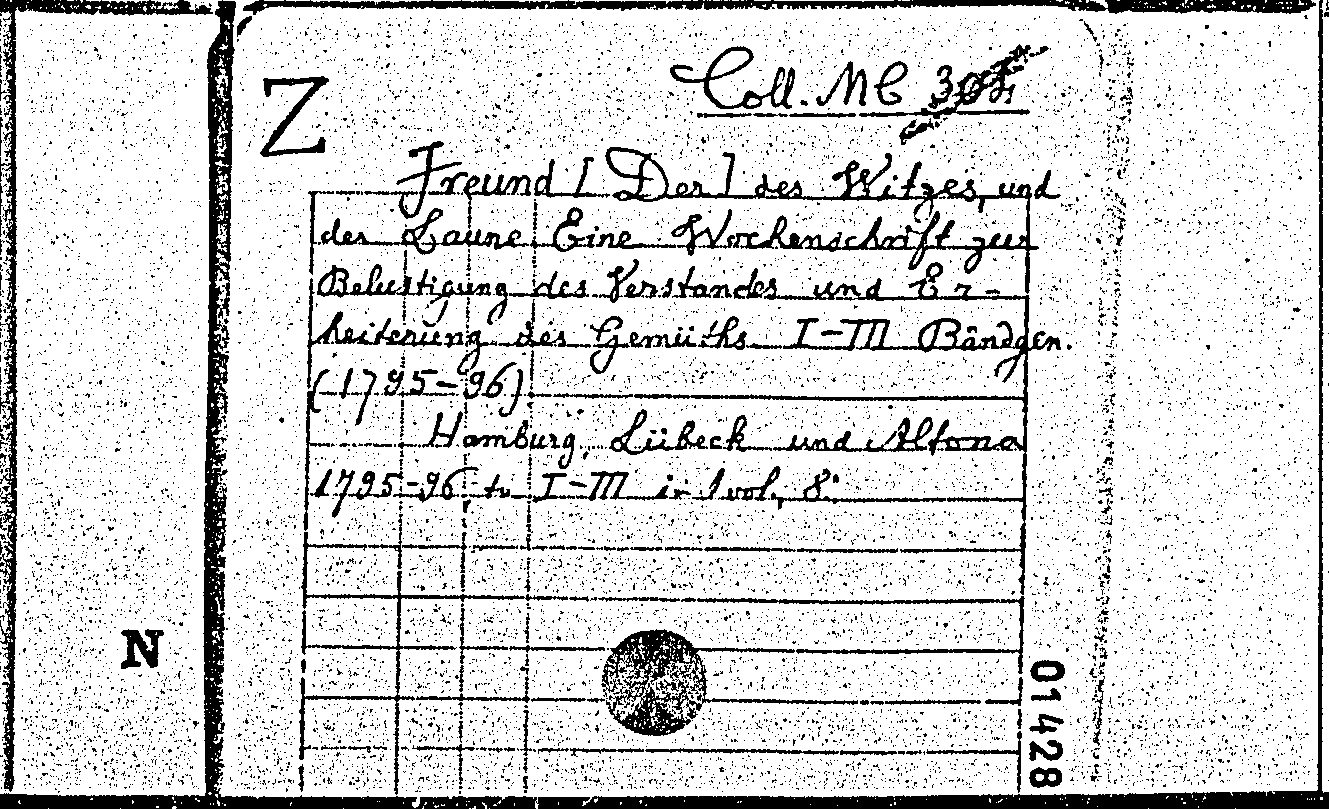 Z
Coll. MC
Freund [Der] des Witzes, und
der Laune. Eine Wochenschrift zur
Belustigung des Verstandes und Er-
heiterung des Gemüths I-III Bändgen.
(1795-96)
Hamburg, Lübeck und Altona
1795-96, tv I-III in 1 vol., 8°.
N
01428